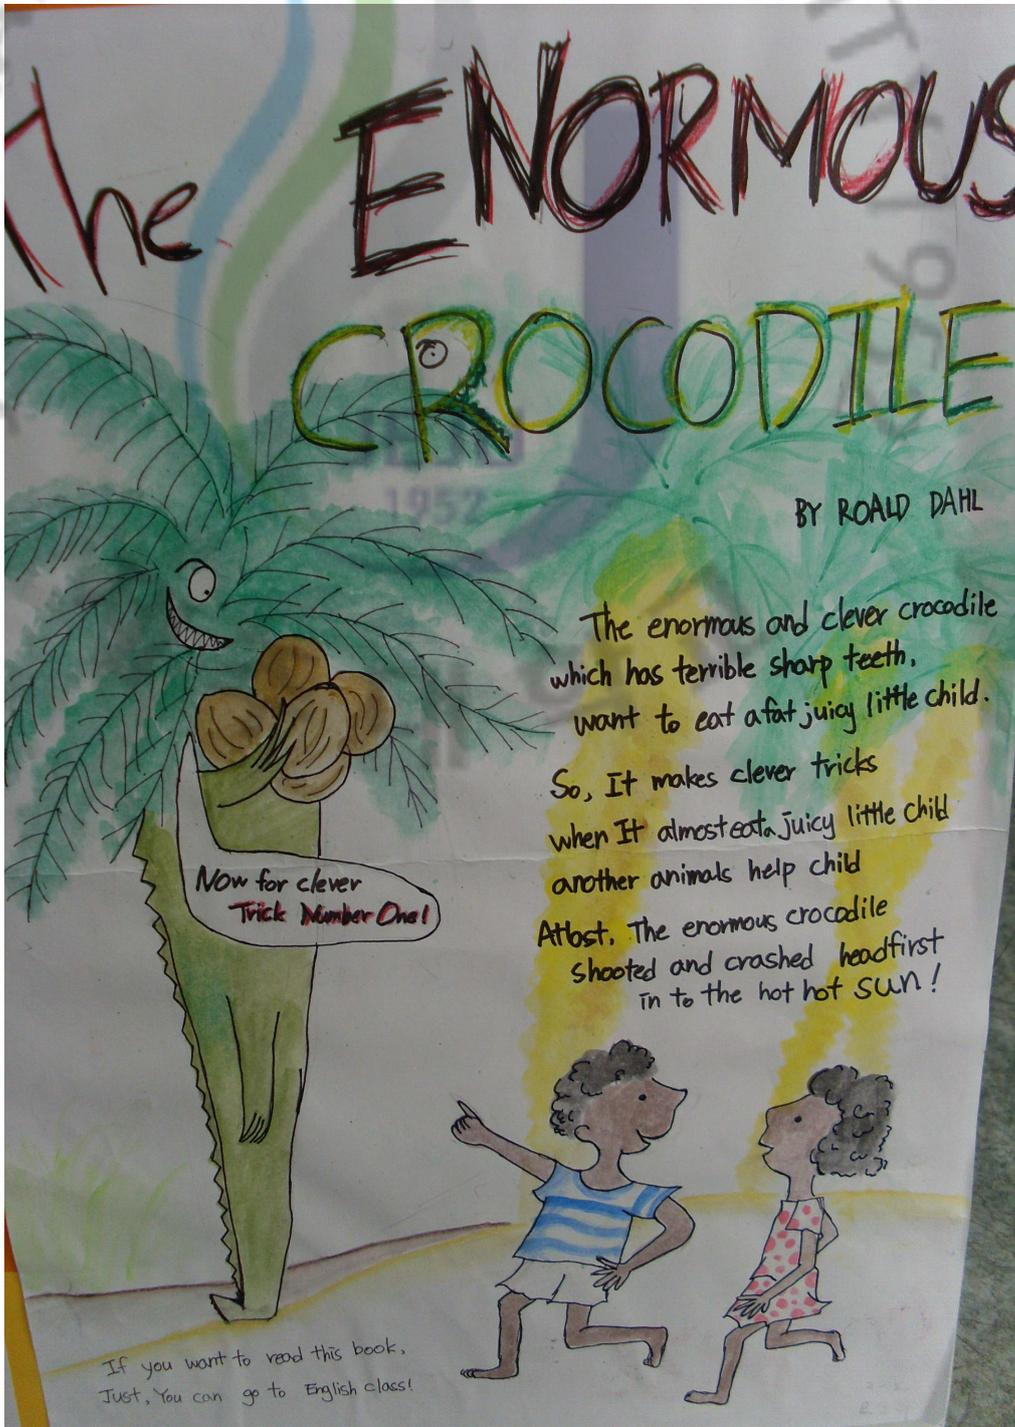 The ENORMOUS
CROCODILE
BY ROALD DAHL
The enormous and clever crocodile
which has terrible sharp teeth,
want to eat a fat juicy little child.
So, It makes clever tricks
when It almost eat a juicy little child
another animals help child
At last, The enormous crocodile
shooted and crashed headfirst
in to the hot hot sun!
Now for clever
Trick Number One!
If you want to read this book,
Just, You can go to English class!
1952